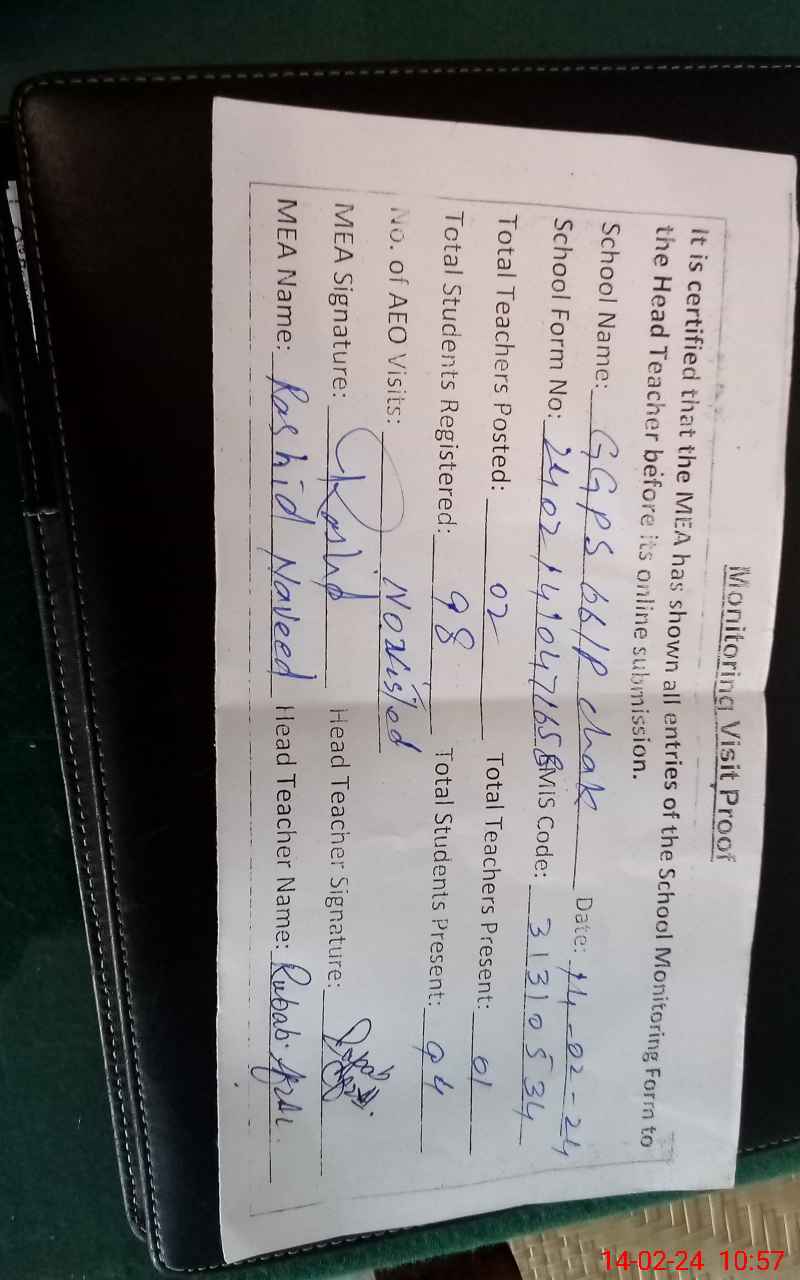 Monitoring Visit Proof
It is certified that the MEA has shown all entries of the School Monitoring Form to
the Head Teacher before its online submission.
School Name: GGPS 66/P chak Date: 14-02-24
School Form No: 2402141047165 EMIS Code: 31310534
Total Teachers Posted: 02 Total Teachers Present: 01
Total Students Registered: 98 Total Students Present: 94
No. of AEO Visits: No visited
MEA Signature: Rashid Head Teacher Signature:
MEA Name: Rashid Naveed Head Teacher Name: Rubab
14-02-24 10:57